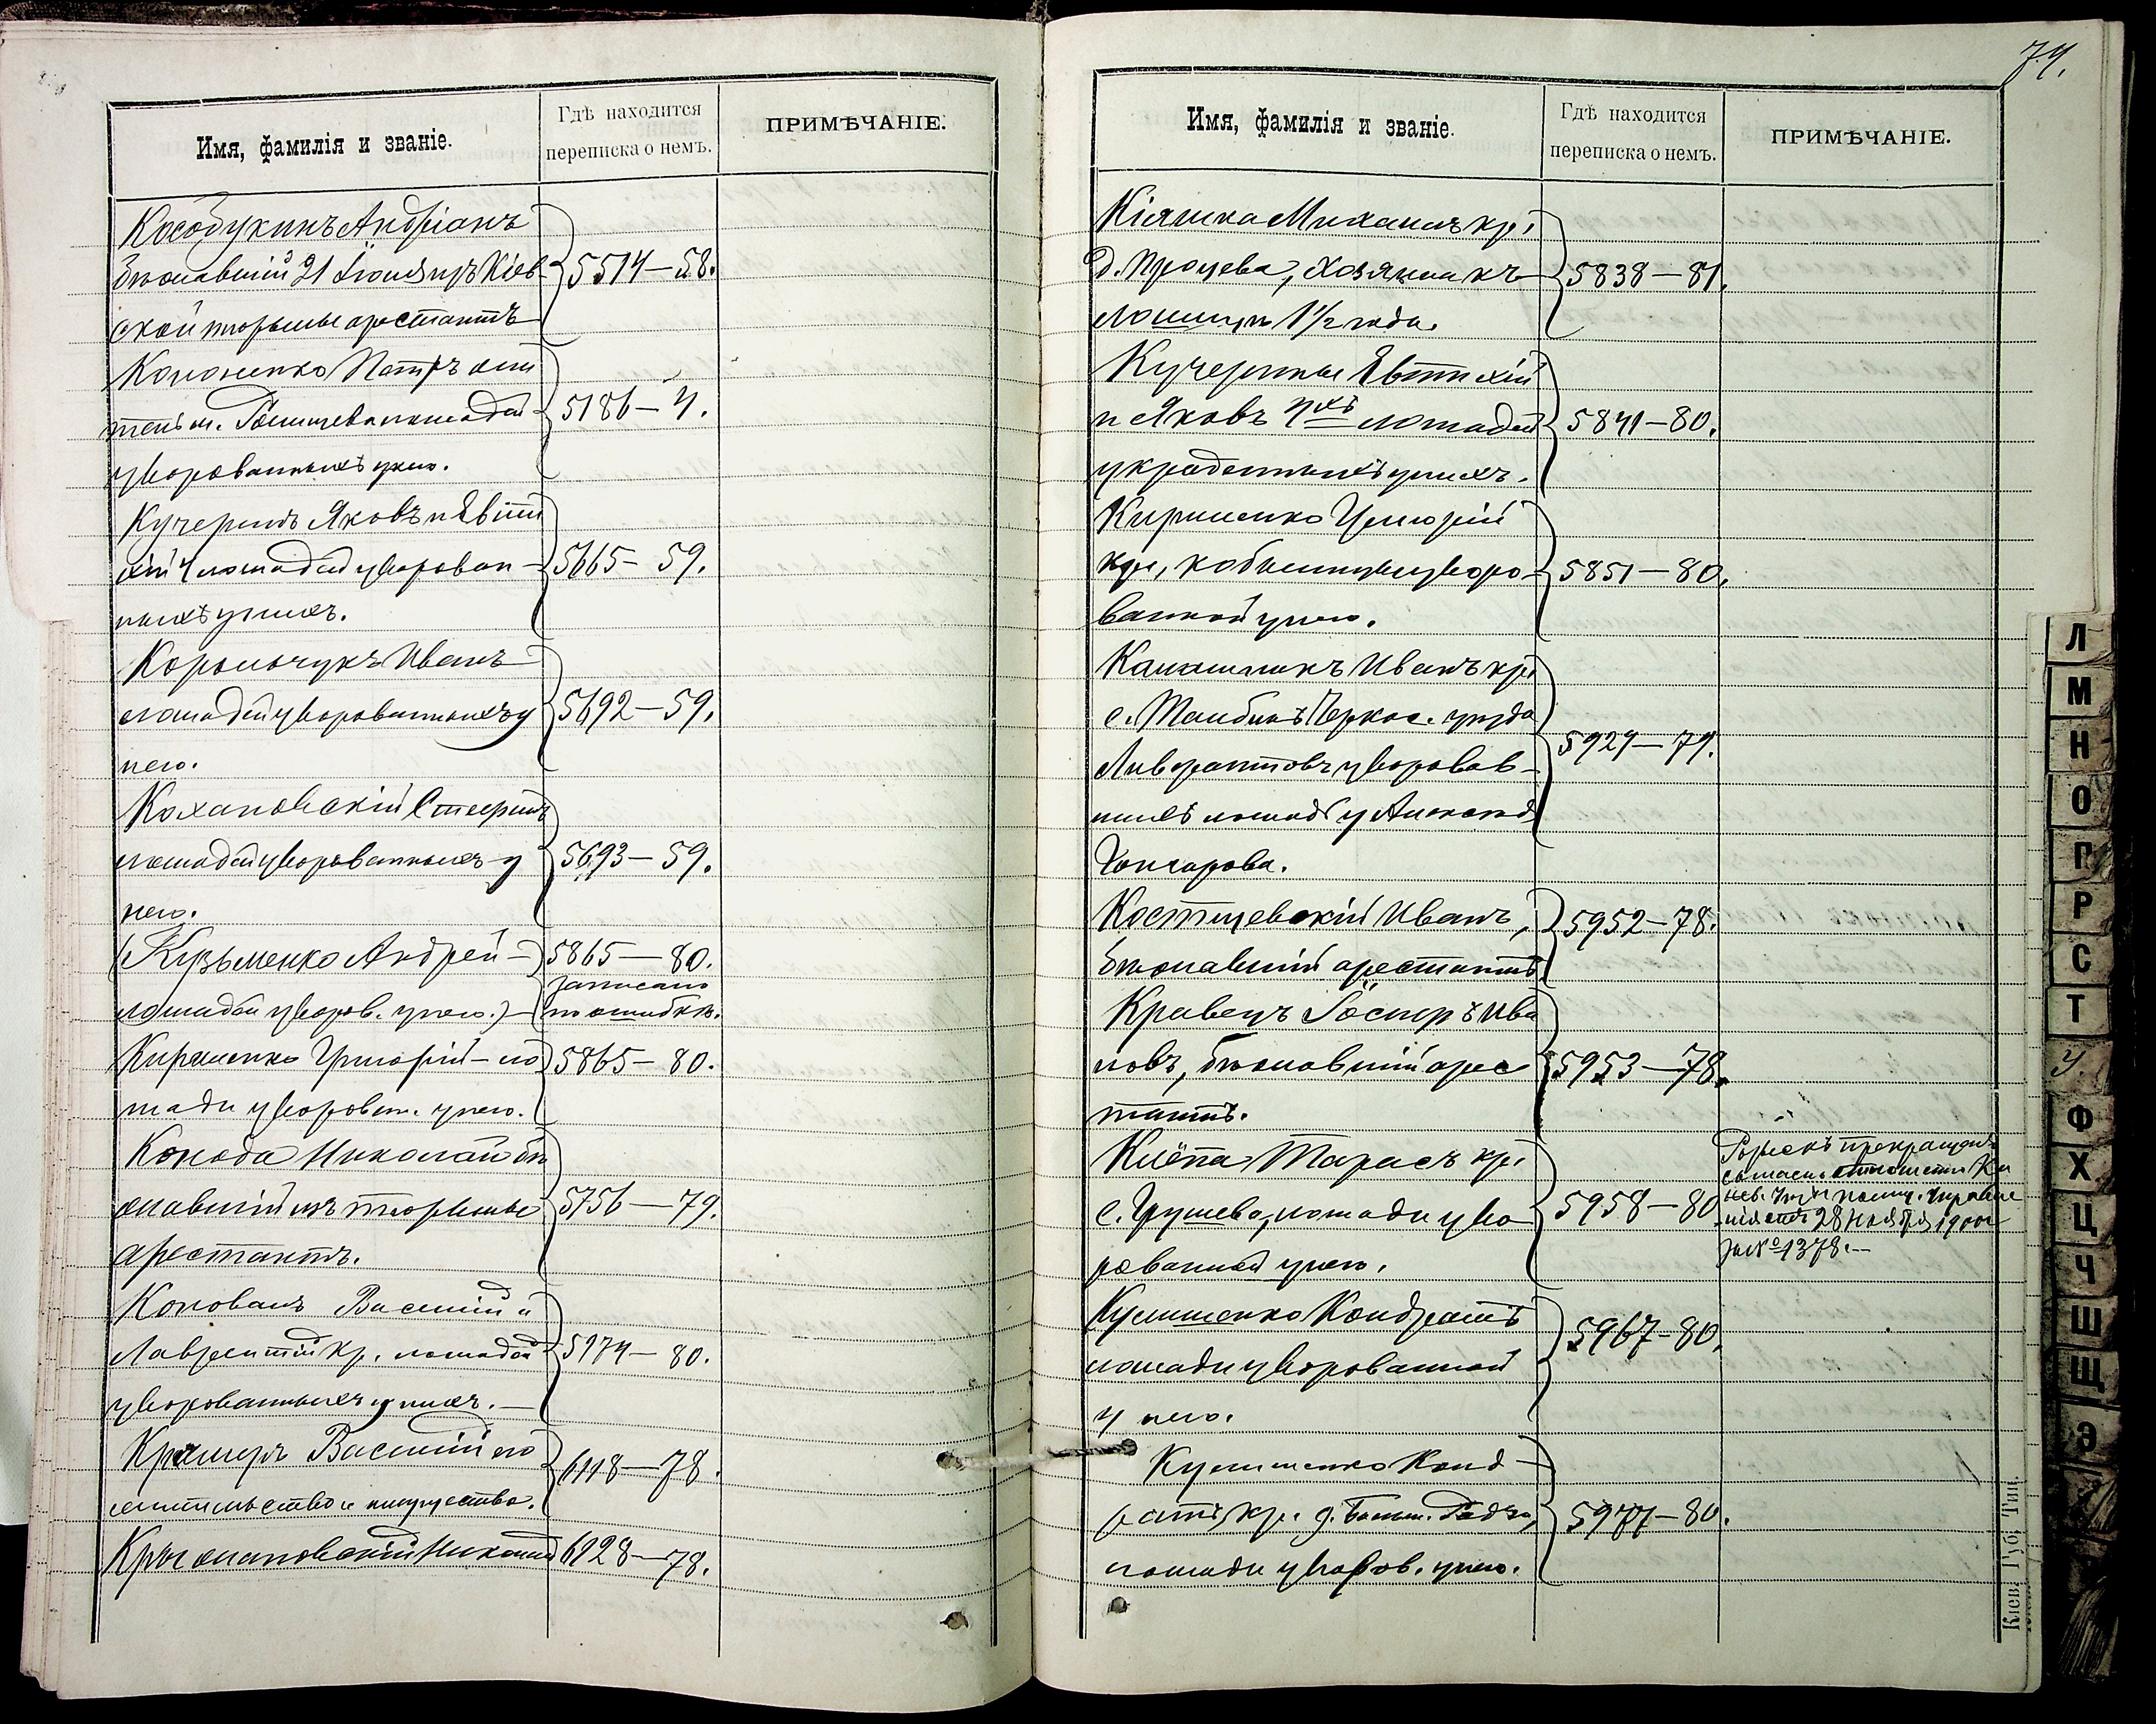 Имя, фамилія и званіе.
Гдѣ находится
переписка о немъ.
ПРИМѢЧАНІЕ.
Кособукинъ Андріанъ
бѣжавшій 21 Іюля изъ Кіев-
ской тюрьмы арестантъ
5514—58.
Кононенко Петръ жи
тель м. лошадей
уворованныхъ у него.
5186—4.
Кучеринъ Яковъ и Евти
хій 4 лошадей уворован-
ныхъ у нихъ.
5665—59.
Корольчукъ Иванъ
лошадей уворованныхъ у
него.
5692—59.
Кохановскій Стефанъ
лошадей уворованныхъ у
него.
5693—59.
(Кузьменко Андрей—
лошадей уворов. у него.)—
5865—80.
записано
по ошибкѣ.
Кириленко Григорій—ло
шади уворован. у него.
5865—80.
Конода Николай бѣ
жавшій изъ тюрьмы
арестантъ.
5756—79.
Коновалъ Василій и
Лаврентій кр. лошадей
уворованныхъ у нихъ.—
5974—80.
Крамеръ Василій его
жительство и имущество.
6118—78.
Кржижановскій Николай
6128—78.
74.
Имя, фамилія и званіе.
Гдѣ находится
переписка о немъ.
ПРИМѢЧАНІЕ.
Кіяшка Михаилъ кр.
д. Процева, хозяина къ
лошицѣ 1½ года.
5838—81.
Кучерины Евтихій
и Яковъ 4хъ лошадей
украденныхъ у нихъ.
5841—80.
Кириленко Григорій
кр., кобылицы уворо-
ванной у него.
5851—80.
Калашникъ Иванъ кр.
с. Талбинъ Черкас. уѣзда
уворовав-
шихъ лошадь у Александ.
Гончарова.
5924—79.
Костецевскій Иванъ,
бѣжавшій арестантъ.
5952—78.
Кравецъ Іосифъ Ива
новъ, бѣжавшій арес
тантъ.
5953—78.
Клёпа Тарасъ кр.
с. Грушева, лошади уво
рованной у него.
5958—80
Розыскъ прекращенъ
согласно отношенія Ки
ев. Уѣзд. полиц. Управле
нія отъ 28 Ноября 1900 г.
за № 1378.—
Кулишенко Кондратъ
лошади уворованной
у него.
5967—80.
Кулишенко Конд—
ратъ, кр. д.
лошади уворов. у него.
5977—80.
Кіев. Губ. Тип.
Л
М
Н
О
П
Р
С
Т
У.
Ф
Х
Ц
Ч
Ш
Щ
Э